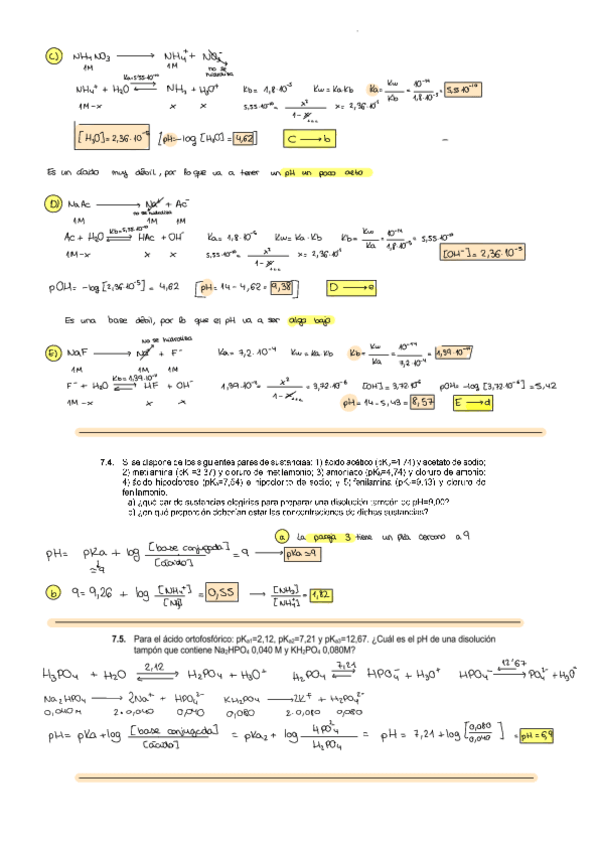 C) NH4NO3 → NH4+ + NO3-
1M 1M no se hidroliza
NH4+ + H2O ⇌ NH3 + H3O+ Kb= 1,8·10-5 Kw= Ka·Kb Ka= Kw/Kb = 10-14/1,8·10-5 = 5,55·10-10
1M-x x x 5,55·10-10 = x2/1-x x= 2,36·10-5
[H3O]= 2,36·10-5 pH=-log [H3O]= 4,62 C → b
Es un ácido muy débil, por lo que va a tener un pH un poco
D) NaAc → Na+ + Ac-
1M no se hidroliza 1M 1M
Ac + H2O ⇌ HAc + OH- Ka= 1,8·10-5 Kw= Ka·Kb Kb= Kw/Ka = 10-14/1,8·10-5 = 5,55·10-10
1M-x x x 5,55·10-10 = x2/1-x x= 2,36·10-5 [OH-]= 2,36·10-5
pOH= -log[2,36·10-5] = 4,62 pH= 14-4,62= 9,38 D → e
Es una base débil, por lo que el pH va a ser algo bajo
E) NaF → Na+ + F- Ka= 7,2·10-4 Kw= Ka·Kb Kb= Kw/Ka = 10-14/7,2·10-4 = 1,39·10-11
no se hidroliza
1M 1M 1M
F- + H2O ⇌ HF + OH- 1,39·10-11 = x2/1-x = 3,72·10-6 [OH]= 3,72·10-6 pOH= -log[3,72·10-6] = 5,42
1M-x x x pH= 14-5,43= 8,57 E → d
7.4. Si se dispone de los siguientes pares de sustancias: 1) ácido acético (pKa=4,74) y acetato de sodio;
2) metilamina (pK =3,37) y cloruro de metilamonio; 3) amoniaco (pKb=4,74) y cloruro de amonio;
4) ácido hipocloroso (pKa=7,54) e hipoclorito de sodio; y 5) fenilamina (pK =9,13) y cloruro de
fenilamonio.
a) ¿qué par de sustancias elegirías para preparar una disolución tampón de pH=9,00?
b) ¿en qué proporción deberían estar las concentraciones de dichas sustancias?
a La pareja 3 tiene un pKa cercano a 9
pH= pKa + log [base conjugada]/[ácido] = 9 → pKa≃9
≃9
b 9= 9,26 + log [NH4+]/[NH3] = 0,55 → [NH3]/[NH4+] = 1,82
7.5. Para el ácido ortofosfórico: pKa1=2,12, pKa2=7,21 y pKa3=12,67. ¿Cuál es el pH de una disolución
tampón que contiene Na2HPO4 0,040 M y KH2PO4 0,080M?
H3PO4 + H2O ⇌ 2,12 H2PO4 + H3O+ H2PO4 ⇌ 7,21 HPO4- + H3O+ HPO4- ⇌ 12'67 PO4 + H3O+
Na2HPO4 → 2Na+ + HPO42- KH2PO4 → 2K+ + H2PO42-
0,040M 2·0,040 0,040 0,080 2·0,080 0,080
pH= pKa + log [base conjugada]/[ácido] = pKa2 + log HPO4/H2PO4 = pH = 7,21 + log [0,080/0,040] = pH= 6,9